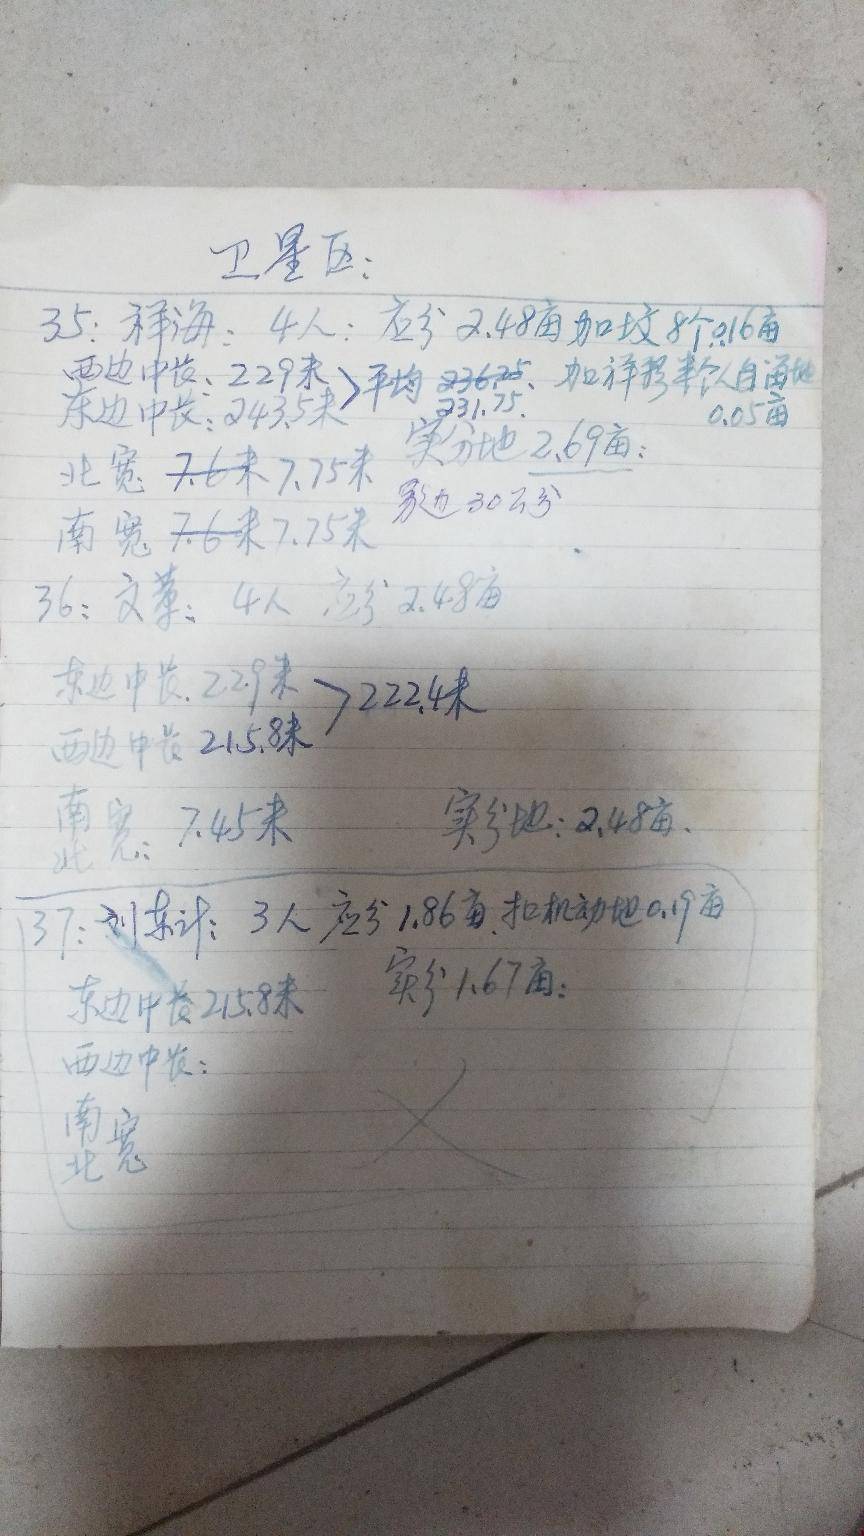 卫星区:
35: 祥海: 4人: 应分2.48亩加坟8个0.16亩
西边中长: 229米
东边中长: 243.5米
>平均 236.25. 加祥 半个人自留地
231.75. 0.05亩
实分地2.69亩:
北宽 7.6米 7.75米
边30公分
南宽 7.6米 7.75米
36: 文革: 4人 应分2.48亩
东边中长. 229米
西边中长 215.8米
>222.4米
南北宽: 7.45米 实分地: 2.48亩.
37: 刘东计: 3人 应分1.86亩. 扣机动地0.19亩
实分1.67亩:
东边中长215.8米
西边中长:
南北宽